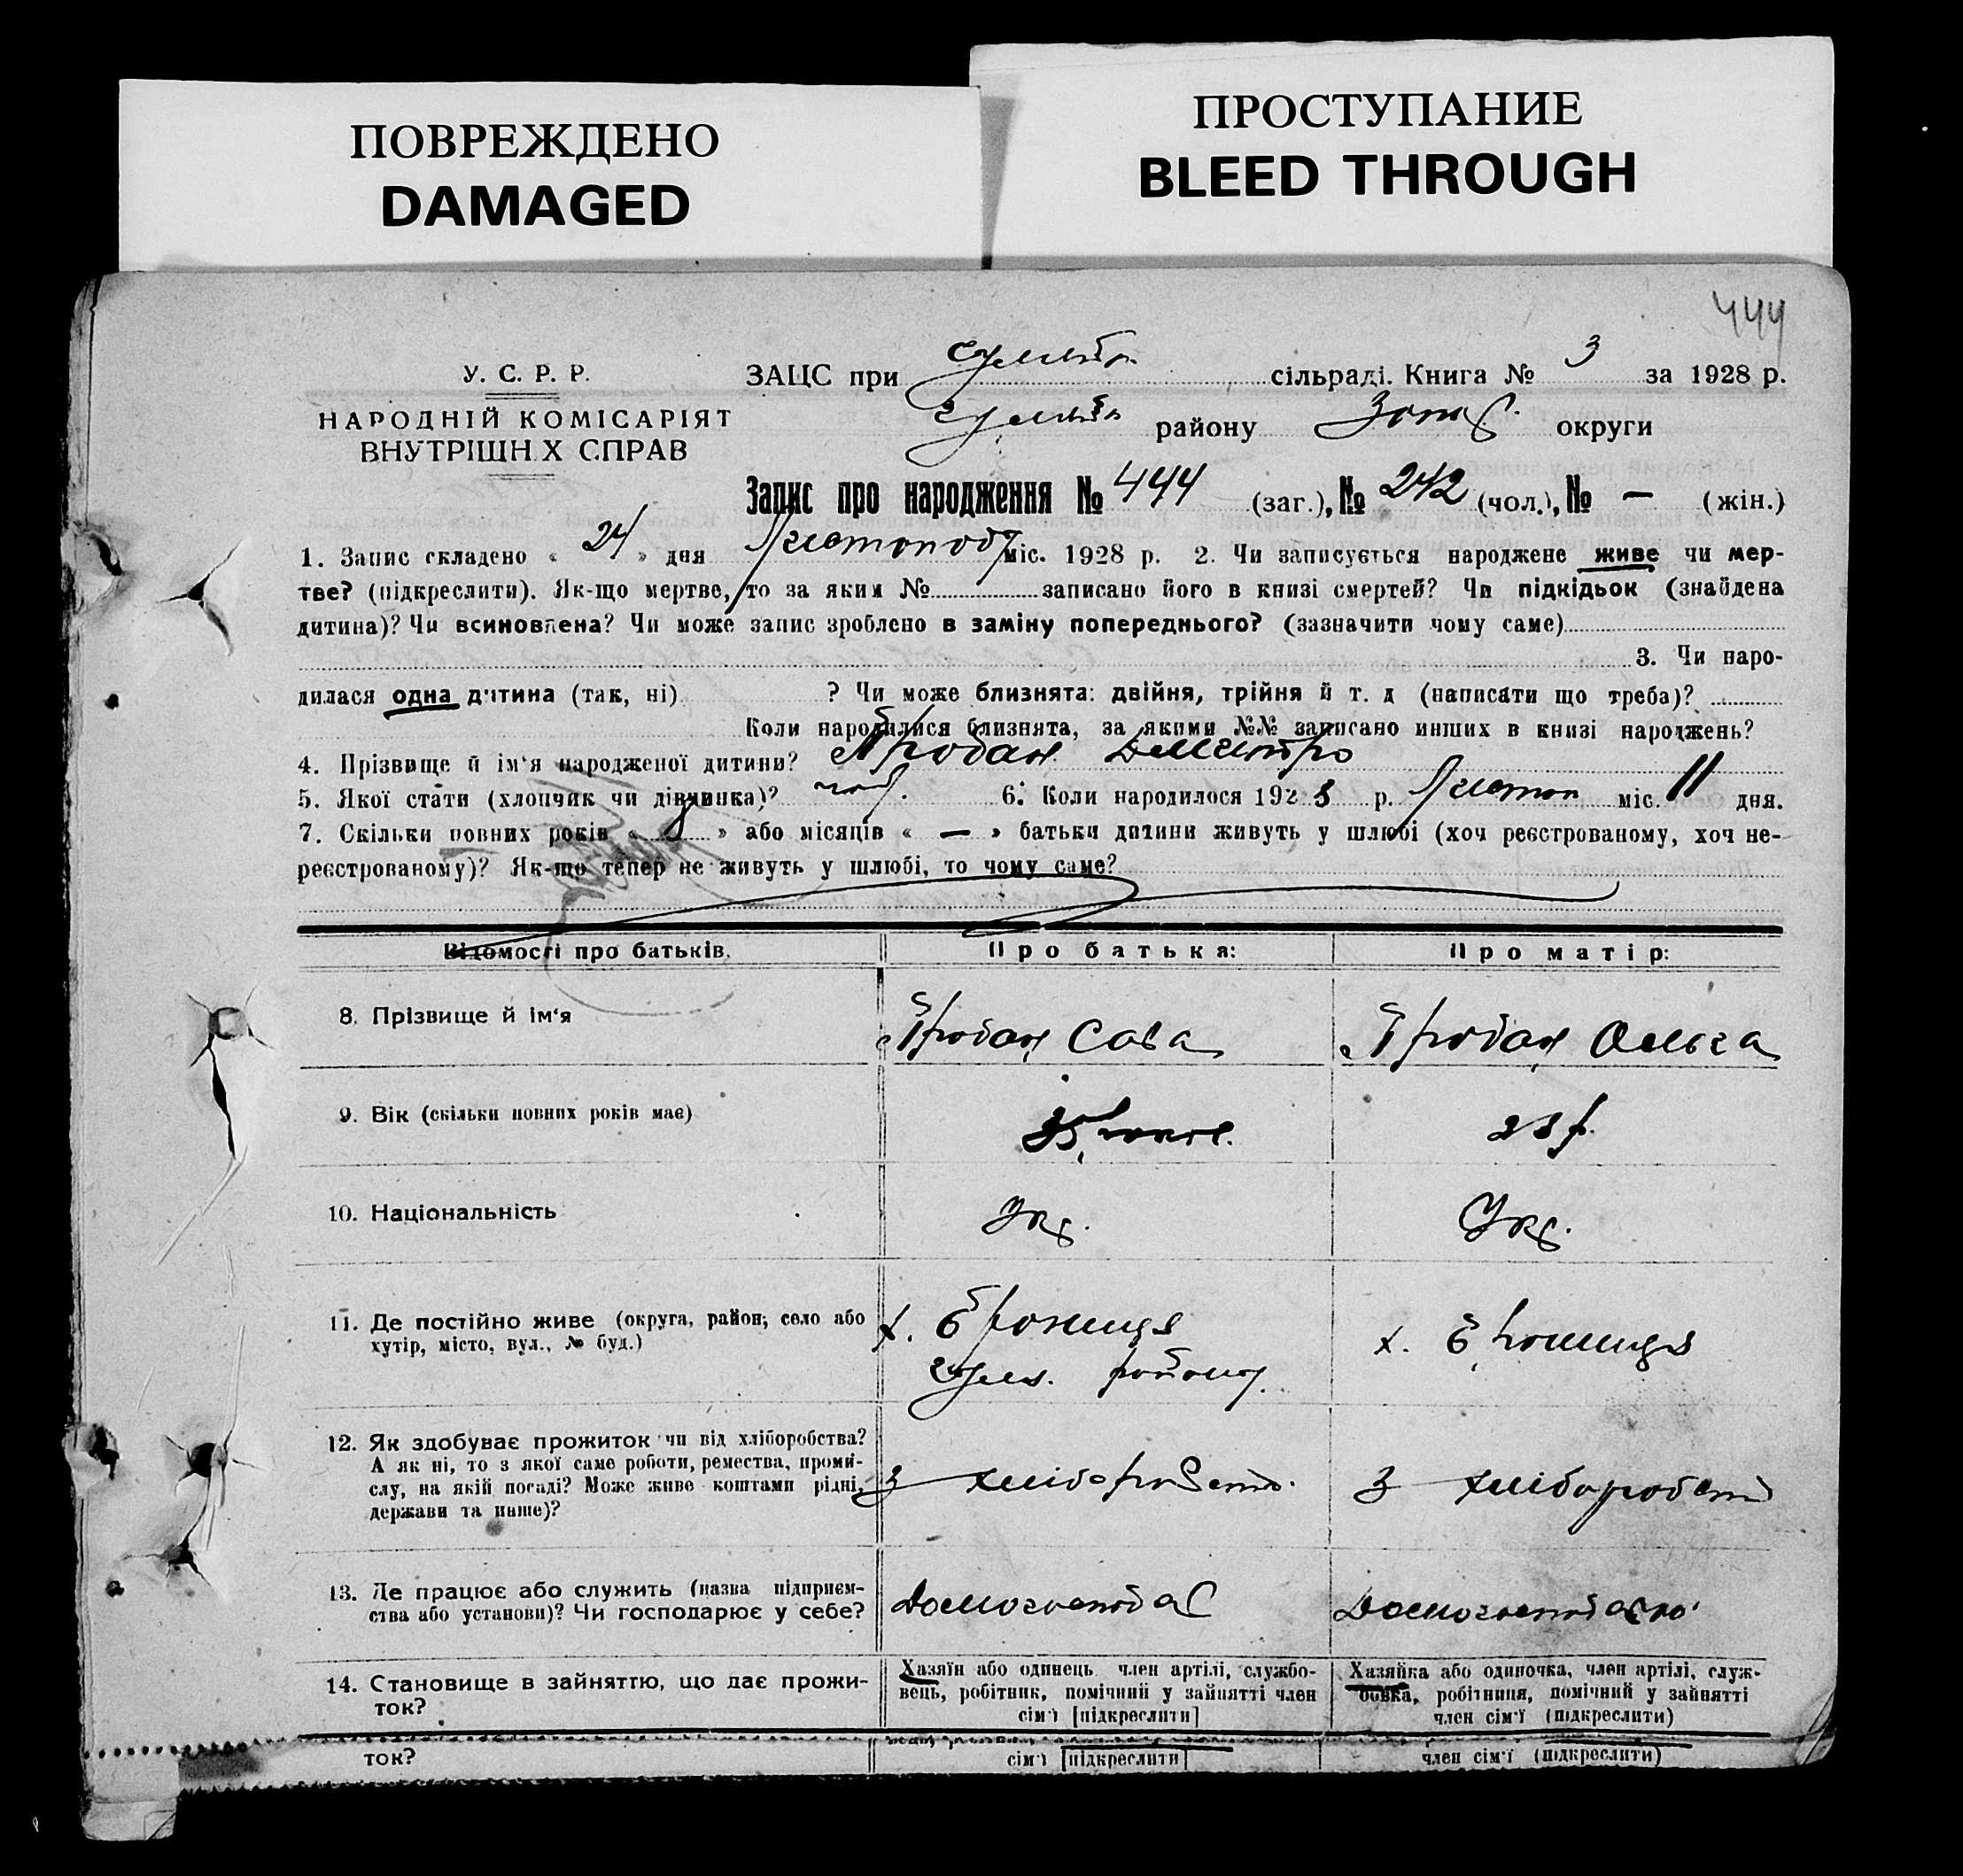 ПОВРЕЖДЕНО
DAMAGED
ПРОСТУПАНИЕ
BLEED THROUGH
444
У. С. Р. Р.
НАРОДНІЙ КОМІСАРІЯТ
ВНУТРІШН.Х СПРАВ
ЗАЦС при сільраді. Книга № 3 за 1928 р.
району округи
Запис про народження № 444 (заг.), № 242 (чол.), № — (жін.)
1. Запис складено « 24 » дня Листоподу міс. 1928 р. 2. Чи записується народжене живе чи мер-
тве? (підкреслити). Як-що мертве, то за яким № записано його в книзі смертей? Чи підкідьок (знайдена
дитина)? Чи всиновлена? Чи може запис зроблено в заміну попереднього? (зазначити чому саме)
3. Чи наро-
дилася одна дитина (так, ні) ? Чи може близнята: двійня, трійня й т. д (написати що треба)?
Коли народилися близнята, за якими №№ записано инших в книзі народжень?
4. Прізвище й ім'я народженої дитини? Продан Дмитро
5. Якої стати (хлопчик чи дівчинка)? чол. 6. Коли народилося 1928 р. Листоп міс. 11 дня.
7. Скільки повних років « 8 » або місяців « — » батьки дитини живуть у шлюбі (хоч реєстрованому, хоч не-
реєстрованому)? Як-що тепер не живуть у шлюбі, то чому саме?
Відомості про батьків. Про батька: Про матір:
8. Прізвище й ім'я Продан Сава Продан Ольга
9. Вік (скільки повних років має) 35 28 р.
10. Національність Укр. Укр.
11. Де постійно живе (округа, район, село або х. х.
хутір, місто, вул., № буд.) району
12. Як здобуває прожиток чи від хліборобства?
А як ні, то з якої саме роботи, ремества, проми-
слу, на якій посаді? Може живе коштами рідні, З хлібороб ств. З хлібороб ств
держави та инше)?
13. Де працює або служить (назва підприєм-
ства або установи)? Чи господарює у себе? Домогосподар Домогосподарка
14. Становище в зайняттю, що дає прожи-
ток?
Хазяїн або одинець член артілі, службо-
вець, робітник, помічний у зайнятті член
сім'ї [підкреслити]
Хазяйка або одиночка, член артілі, служ-
бовка, робітниця, помічний у зайнятті
член сім'ї (підкреслити)
ток? сім'ї [підкреслити] член сім'ї (підкреслити)